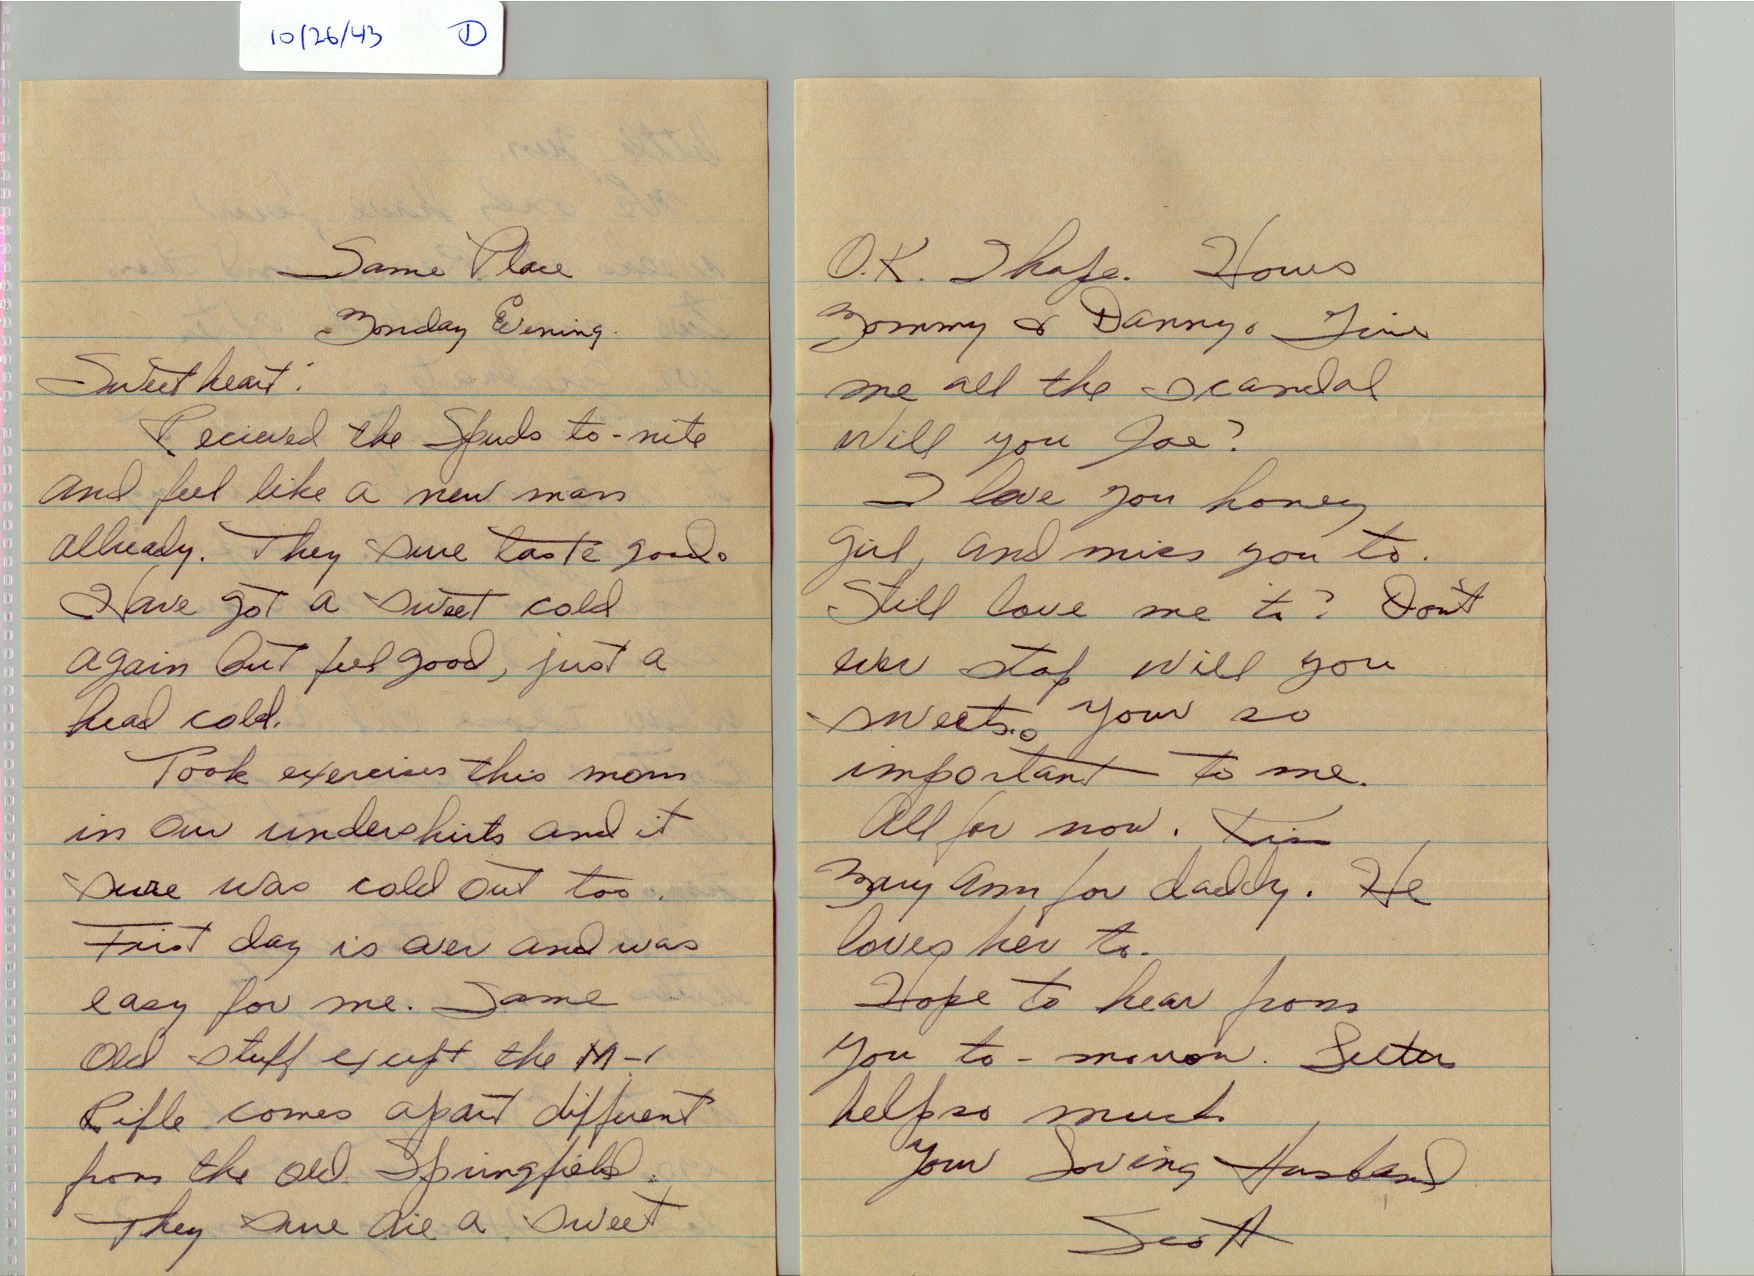 10/26/43 D
Same Place
Monday Evening.
Sweetheart:
Recieved the Spuds to-nite
and feel like a new man
allready. They sure taste good.
Have got a sweet cold
again but feel good, just a
head cold.
Took exercises this morn
in our undershirts and it
sure was cold out too.
First day is over and was
easy for me. Same
old stuff except the M-1
Rifle comes apart different
from the old Springfield.
They sure are a sweet
O.K. I hope. Hows
Mommy & Danny. Give
me all the scandal
will you Joe?
I love you honey
girl, and miss you to.
Still love me to? Don't
ever stop will you
sweets. Your so
important to me.
All for now. Kiss
Mary Ann for daddy. He
loves her to.
Hope to hear from
you to-morrow. Letters
help so much.
Your Loving Husband
Scott